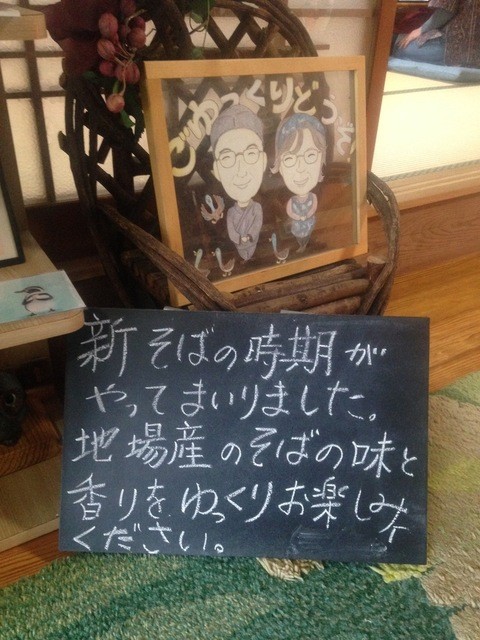 ごゆっくりどうぞ
新そばの時期が
やってまいりました。
地場産のそばの味と
香りをゆっくりお楽しみ
ください。